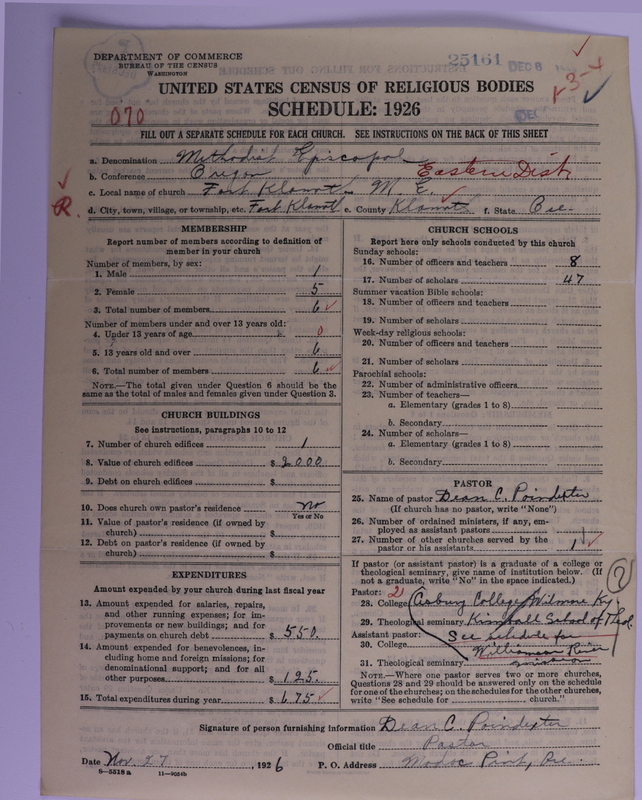 DEPARTMENT OF COMMERCE
BUREAU OF THE CENSUS
WASHINGTON
25161 DEC 8
3-4
UNITED STATES CENSUS OF RELIGIOUS BODIES
SCHEDULE: 1926
070
FILL OUT A SEPARATE SCHEDULE FOR EACH CHURCH. SEE INSTRUCTIONS ON THE BACK OF THIS SHEET
a. Denomination Methodist Episcopal
b. Conference Oregon Eastern Dist
c. Local name of church Fort Klamath M. E.
R.
d. City, town, village, or township, etc. Fort Klamath e. County Klamath f. State Ore.
MEMBERSHIP
Report number of members according to definition of
member in your church
Number of members, by sex:
1. Male 1
2. Female 5
3. Total number of members 6
Number of members under and over 13 years old:
4. Under 13 years of age 0
5. 13 years old and over 6
6. Total number of members 6
NOTE.—The total given under Question 6 should be the
same as the total of males and females given under Question 3.
CHURCH BUILDINGS
See instructions, paragraphs 10 to 12
7. Number of church edifices 1
8. Value of church edifices $ 2000
9. Debt on church edifices $
10. Does church own pastor's residence no
Yes or No
11. Value of pastor's residence (if owned by
church) $
12. Debt on pastor's residence (if owned by
church) $
EXPENDITURES
Amount expended by your church during last fiscal year
13. Amount expended for salaries, repairs,
and other running expenses; for im-
provements or new buildings; and for
payments on church debt $ 550.
14. Amount expended for benevolences, in-
cluding home and foreign missions; for
denominational support; and for all
other purposes $ 125.
15. Total expenditures during year $ 675
CHURCH SCHOOLS
Report here only schools conducted by this church
Sunday schools:
16. Number of officers and teachers 8
17. Number of scholars 47
Summer vacation Bible schools:
18. Number of officers and teachers
19. Number of scholars
Week-day religious schools:
20. Number of officers and teachers
21. Number of scholars
Parochial schools:
22. Number of administrative officers
23. Number of teachers—
a. Elementary (grades 1 to 8)
b. Secondary
24. Number of scholars—
a. Elementary (grades 1 to 8)
b. Secondary
PASTOR
25. Name of pastor Dean C. Poindexter
(If church has no pastor, write "None")
26. Number of ordained ministers, if any, em-
ployed as assistant pastors
27. Number of other churches served by the
pastor or his assistants 1
If pastor (or assistant pastor) is a graduate of a college or
theological seminary, give name of institution below. (If
not a graduate, write "No" in the space indicated.)
Pastor: 2
28. College Asbury College, Wilmore Ky.
29. Theological seminary Kimball School of Theol.
Assistant pastor: See schedule for
30. College Williamson River
31. Theological seminary mission
NOTE.—Where one pastor serves two or more churches,
Questions 28 and 29 should be answered only on the schedule
for one of the churches; on the schedules for the other churches,
write "See schedule for church."
Signature of person furnishing information Dean C. Poindexter
Official title Pastor
Date Nov. 27, 1926 P. O. Address Modoc Point, Ore.
8-5518a 11-9054b